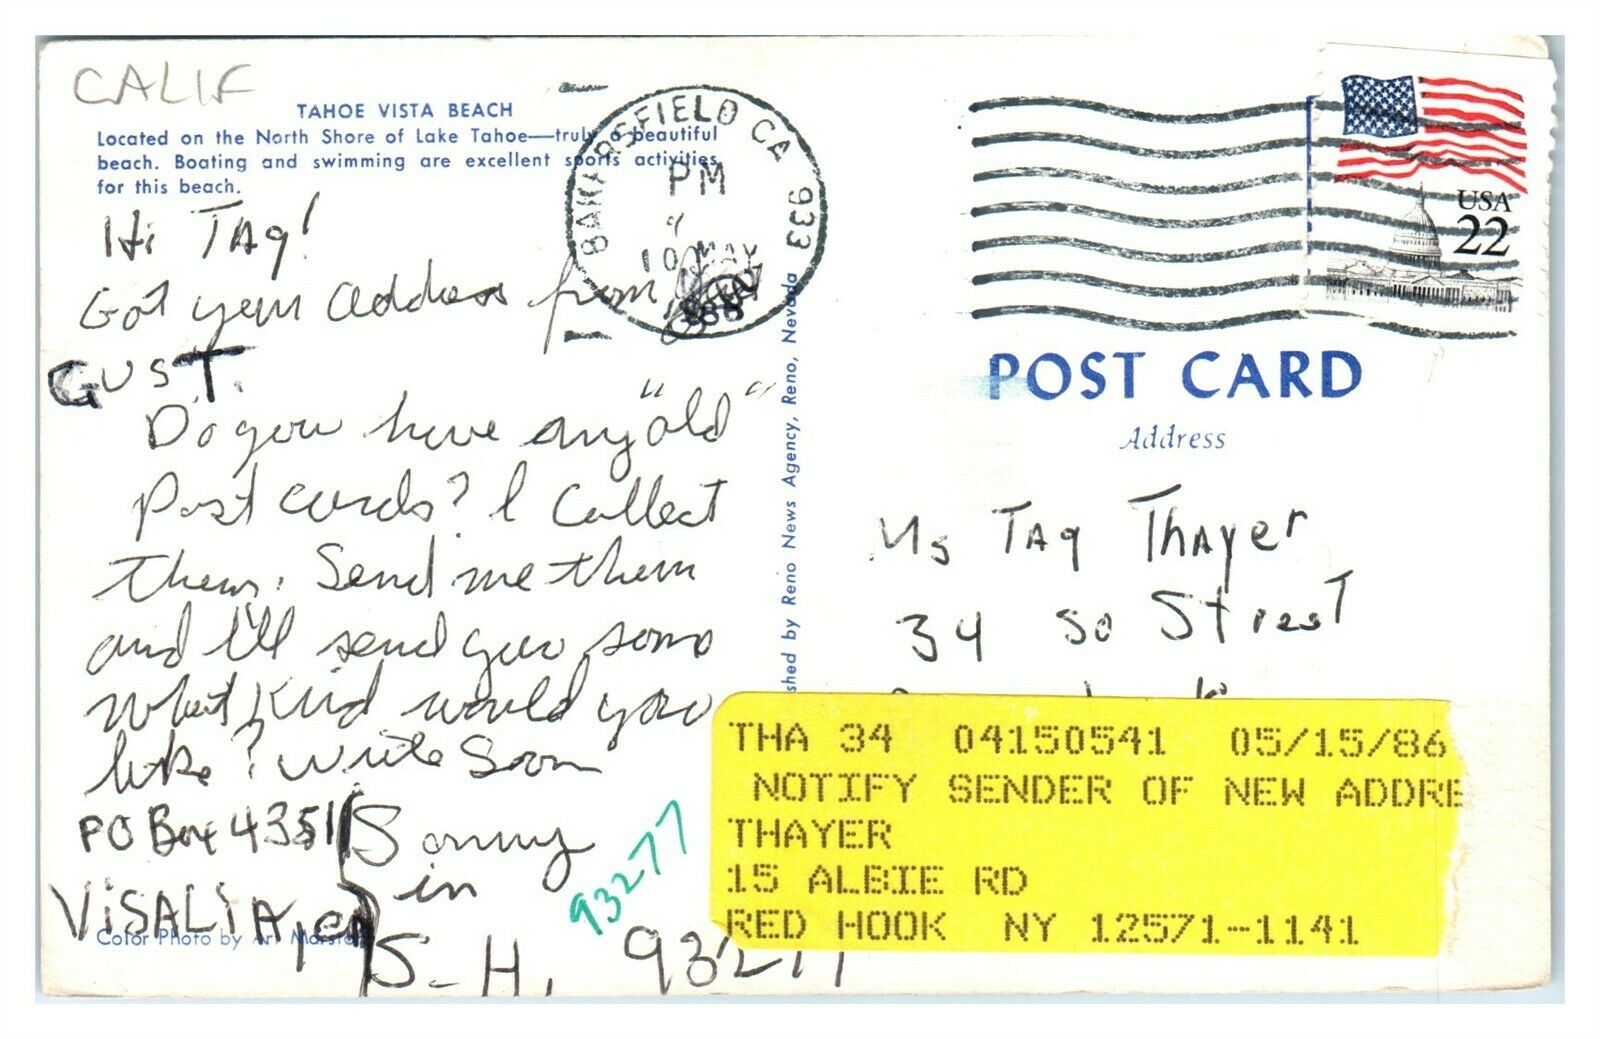 CALIF
TAHOE VISTA BEACH
Located on the North Shore of Lake Tahoe—truly a beautiful
beach. Boating and swimming are excellent sports activities
for this beach.
Hi TAq!
Got your address from
GUST.
Do you have any "old"
Post cards? I Collect
them. Send me them
and I'll send you some
What Kind would you
like? Write Soon
Sonny
in
S-H,
PO Box 4351
ViSALIA,
93277
93277
Color Photo by Art Marston
shed by Reno News Agency, Reno, Nevada
BAKERSFIELD CA 933
PM
10 MAY
USA
22
POST CARD
Address
Ms TAq Thayer
34 So Street
THA 34 04150541 05/15/86
NOTIFY SENDER OF NEW ADDRE
THAYER
15 ALBIE RD
RED HOOK NY 12571-1141